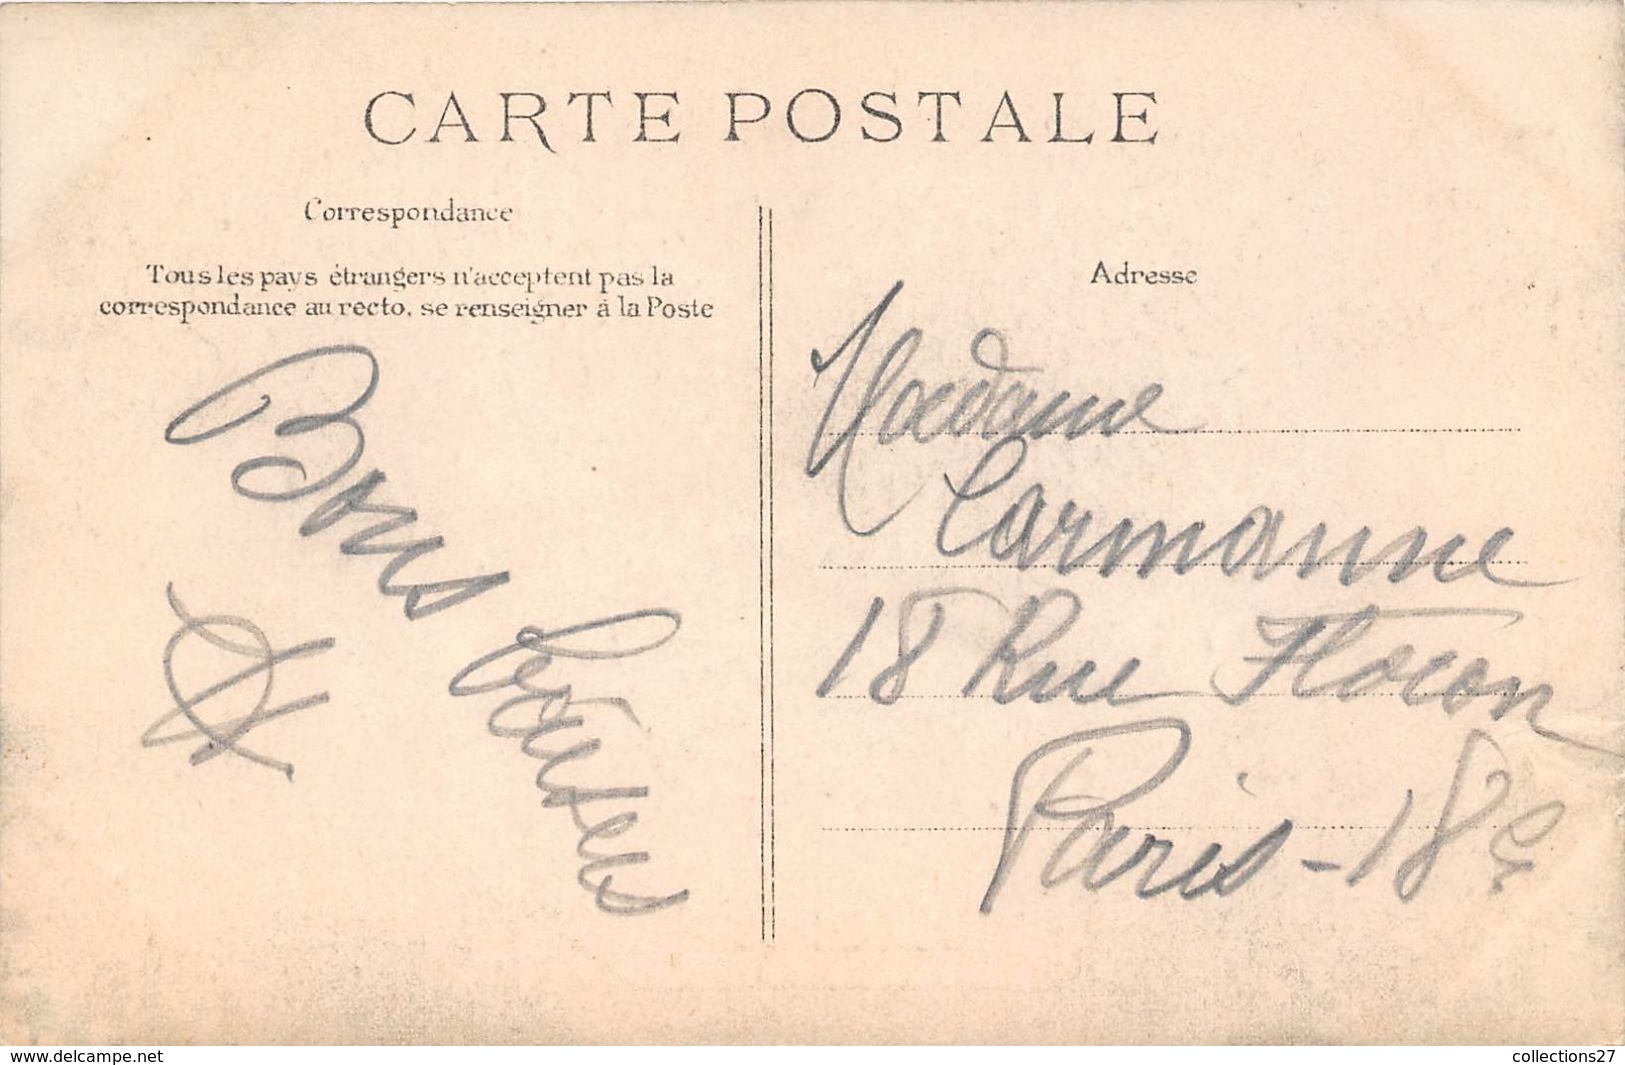 CARTE POSTALE
Correspondance
Tous les pays étrangers n'acceptent pas la
correspondance au recto, se renseigner à la Poste
Bons baisers
Adresse
Madame
Carmanne
18 Rue Flocon
Paris - 18e
www.delcampe.net
collections27